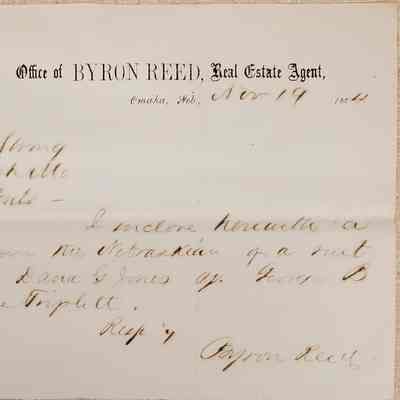 Office of BYRON REED, Real Estate Agent,
Omaha, Neb., Nov 19 1864
Strong
Mo
Gents –
I inclose herewith a
the Nebraskian of a suit
Dana G Jones
Triplett.
Resp'y
Byron Reed